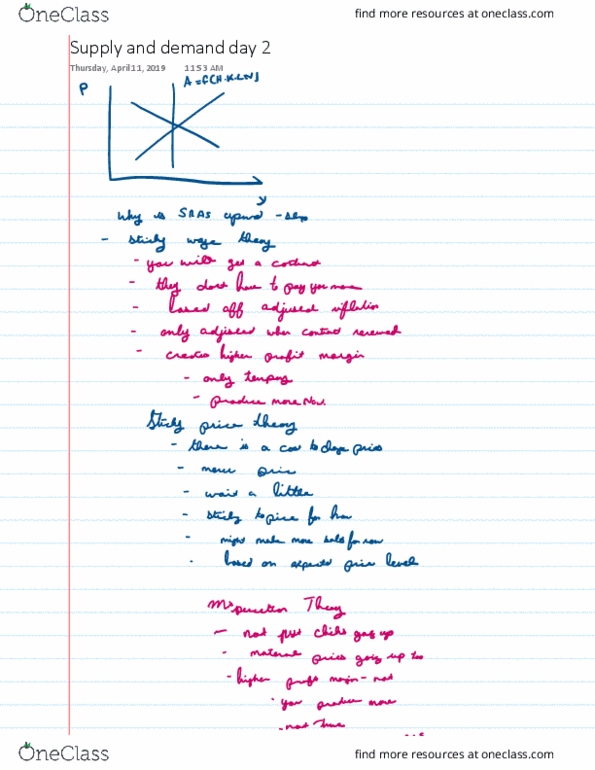 OneClass
find more resources at oneclass.com
Supply and demand day 2
Thursday, April 11, 2019 11:53 AM
P
Y
Why is SRAS upward -
- Sticky wage theory
- you will get a contract
- they dont have to pay you more
- based off adjusted inflation
- only adjusted when contract renewed
- creates higher profit margin
- only
- produce more Now.
Sticky price theory
- there is a cost to
- menu price
- wait a little
- sticky to price for
- might make more for now
- based on expected price level
Theory
- not just going up
- material prices going up too
- higher profit margin - not
you produce more
not true
OneClass
find more resources at oneclass.com